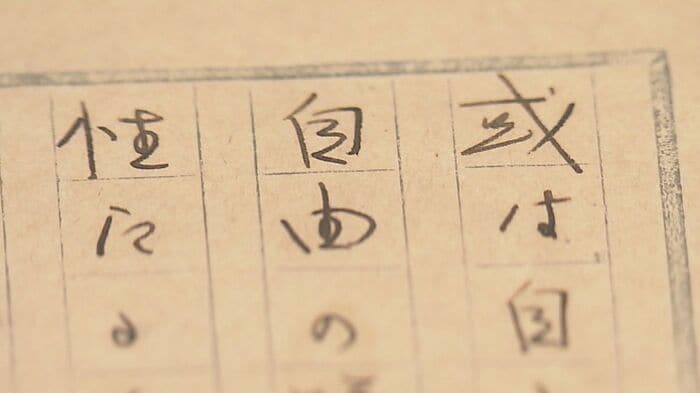 或は自
自由の
性に